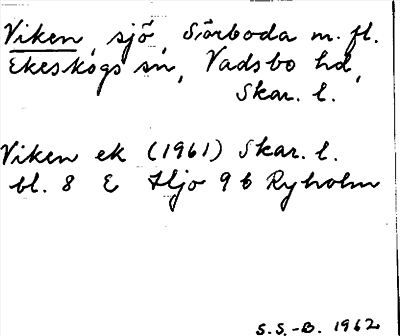 Viken, sjö, Sörboda m. fl.
Ekeskogs sn, Vadsbo hd,
Skar. l.
Viken ek (1961) Skar. l.
bl. 8 E Hjo 9 b Ryholm
S.S.-B. 1962